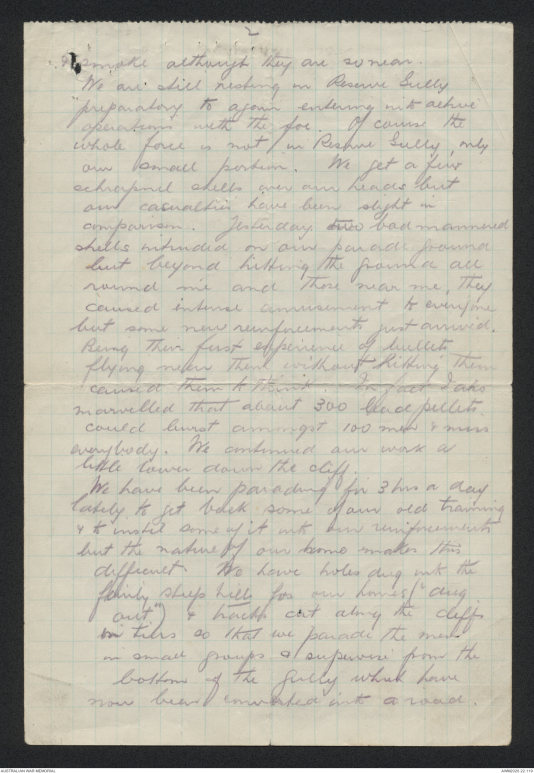 2
& smoke although they are so near.
We are still resting in Reserve Gully
preparatory to again entering into active
operations with the foe. Of course the
whole force is not in Reserve Gully, only
our small portion. We get a few
schrapnel shells over our heads but
our casualties have been slight in
comparison. Yesterday two bad mannered
shells intruded on our parade ground
but beyond hitting the ground all
round me and those near me, they
caused intense amusement to everyone
but some new reinforcements just arrived.
Being their first experience of bullets
flying near them without hitting them
caused them to think. In fact I also
marvelled that about 300 lead pellets
could burst amongst 100 men & miss
everybody. We continued our work a
little lower down the cliff.
We have been parading for 3 hrs a day
lately to get back some of our old training
& to instil some of it into our reinforcements
but the nature of our home makes this
difficult. We have holes dug into the
fairly steep hills for our homes ("dug
out") & tracks cut along the cliffs
in tiers so that we parade the men
in small groups & supervise from the
bottom of the gully which have
now been converted into a road.
AUSTRALIAN WAR MEMORIAL